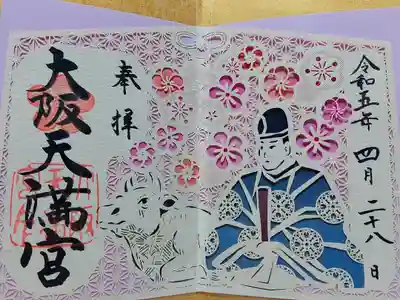 令和五年 四月 二十八日
奉拝
大阪天満宮